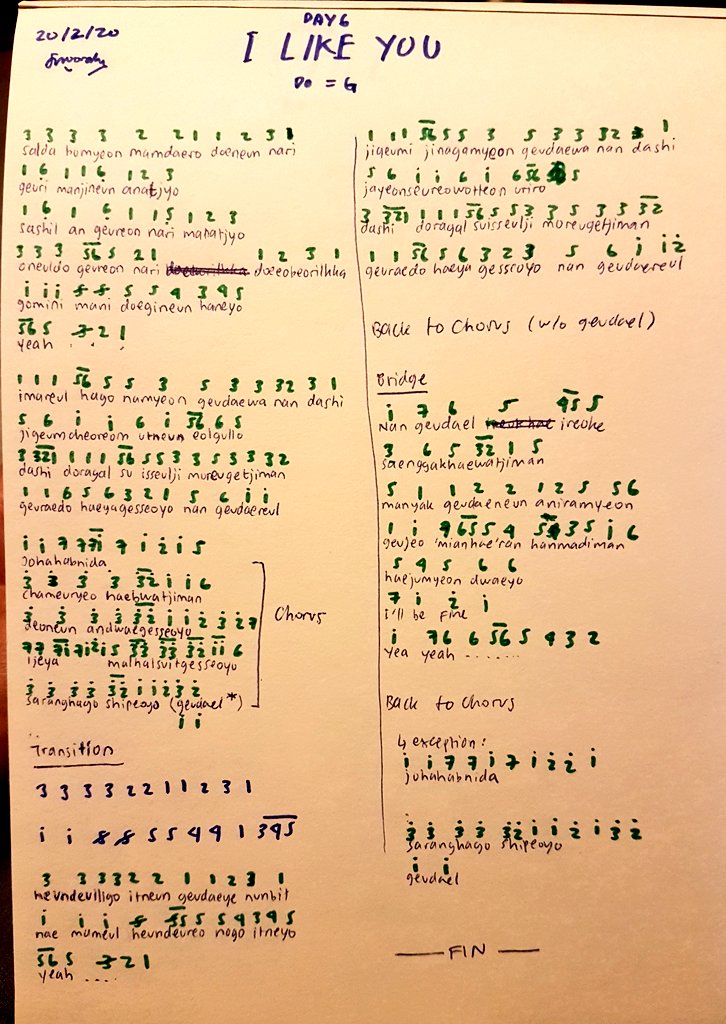 20/2/20
DAY6
I LIKE YOU
DO = G
3 3 3 3 2 2 1 1 2 3 1
salda bomyeon mamdaero doeneun nari
1 6 1 1 6 1 2 3
geuri manjineun anatjyo
1 6 1 6 1 1 5 1 2 3
sashil an geureon nari manatjyo
3 3 3 56 5 2 1 1 2 3 1
oneuldo geureon nari doeeobeorilkka
i i i 8 8 5 5 4 3 4 5
gomini mani doegineun haneyo
56 5 3 2 1
yeah . . .
1 1 1 56 5 5 3 5 3 3 32 3 1
imareul hago namyeon geudaewa nan dashi
5 6 i i 6 i 56 6 5
jigeumcheoreom utneun eolgullo
3 321 1 1 1 56 5 5 3 3 5 3 3 32
dashi doragal su isseulji moreugetjiman
1 1 6 5 6 3 2 1 5 6 i i
geuraedo haeyagesseoyo nan geudaereul
i i 7 7 7i 7 i 2 i 5
Johahabnida
3 3 3 3 32 i i 6
chameuryeo haebwatjiman
3 3 3 3 32 i i 2 3 27
deoneun andwaegesseoyo
77 7i 7i2i5 33 32 33 32 ii 6
ijeya malhalsuitgesseoyo
3 3 3 3 32 i i 2 3 2
saranghago shipeoyo (geudael*)
i i
Chorus
Transition
3 3 3 3 2 2 1 1 2 3 1
i i 8 8 5 5 4 4 1 345
3 3 3 3 2 2 1 1 2 3 1
heundeulligo itneun geudaeye nunbit
i i i 8 35 5 5 4 3 4 5
nae mameul heundeureo nogo itneyo
56 5 3 2 1
yeah ....
1 1 1 56 5 5 3 5 3 3 32 3 1
jigeumi jinagamyeon geudaewa nan dashi
5 6 i i 6 i 6 56 5
jayeonseureowotteon uriro
3 321 1 1 1 56 5 5 3 3 5 3 3 32
dashi doragal suisseulji moreugetjiman
1 1 56 5 6 3 2 3 5 6 i i2
geuraedo haeya gesseoyo nan geudaereul
Back to Chorus (w/o geudael)
Bridge
i 7 6 5 45 5
Nan geudael ireoke
3 6 5 32 1 5
saenggakhaewatjiman
5 1 1 2 2 1 2 5 56
manyak geudaeneun aniramyeon
1 i 7 65 5 4 5 4 3 5 i 6
geujeo 'mianhae'ran hanmadiman
5 4 5 6 6
haejumyeon dwaeyo
7 i 2 i
i'll be fine
i 76 6 56 5 4 3 2
Yea yeah .......
Back to Chorus
↳ exception:
i i 7 7 i 7 i 2 2 i
johahabnida
3 3 3 3 32 i i 2 i 3 2
saranghago shipeoyo
i i
geudael
—— FIN ——